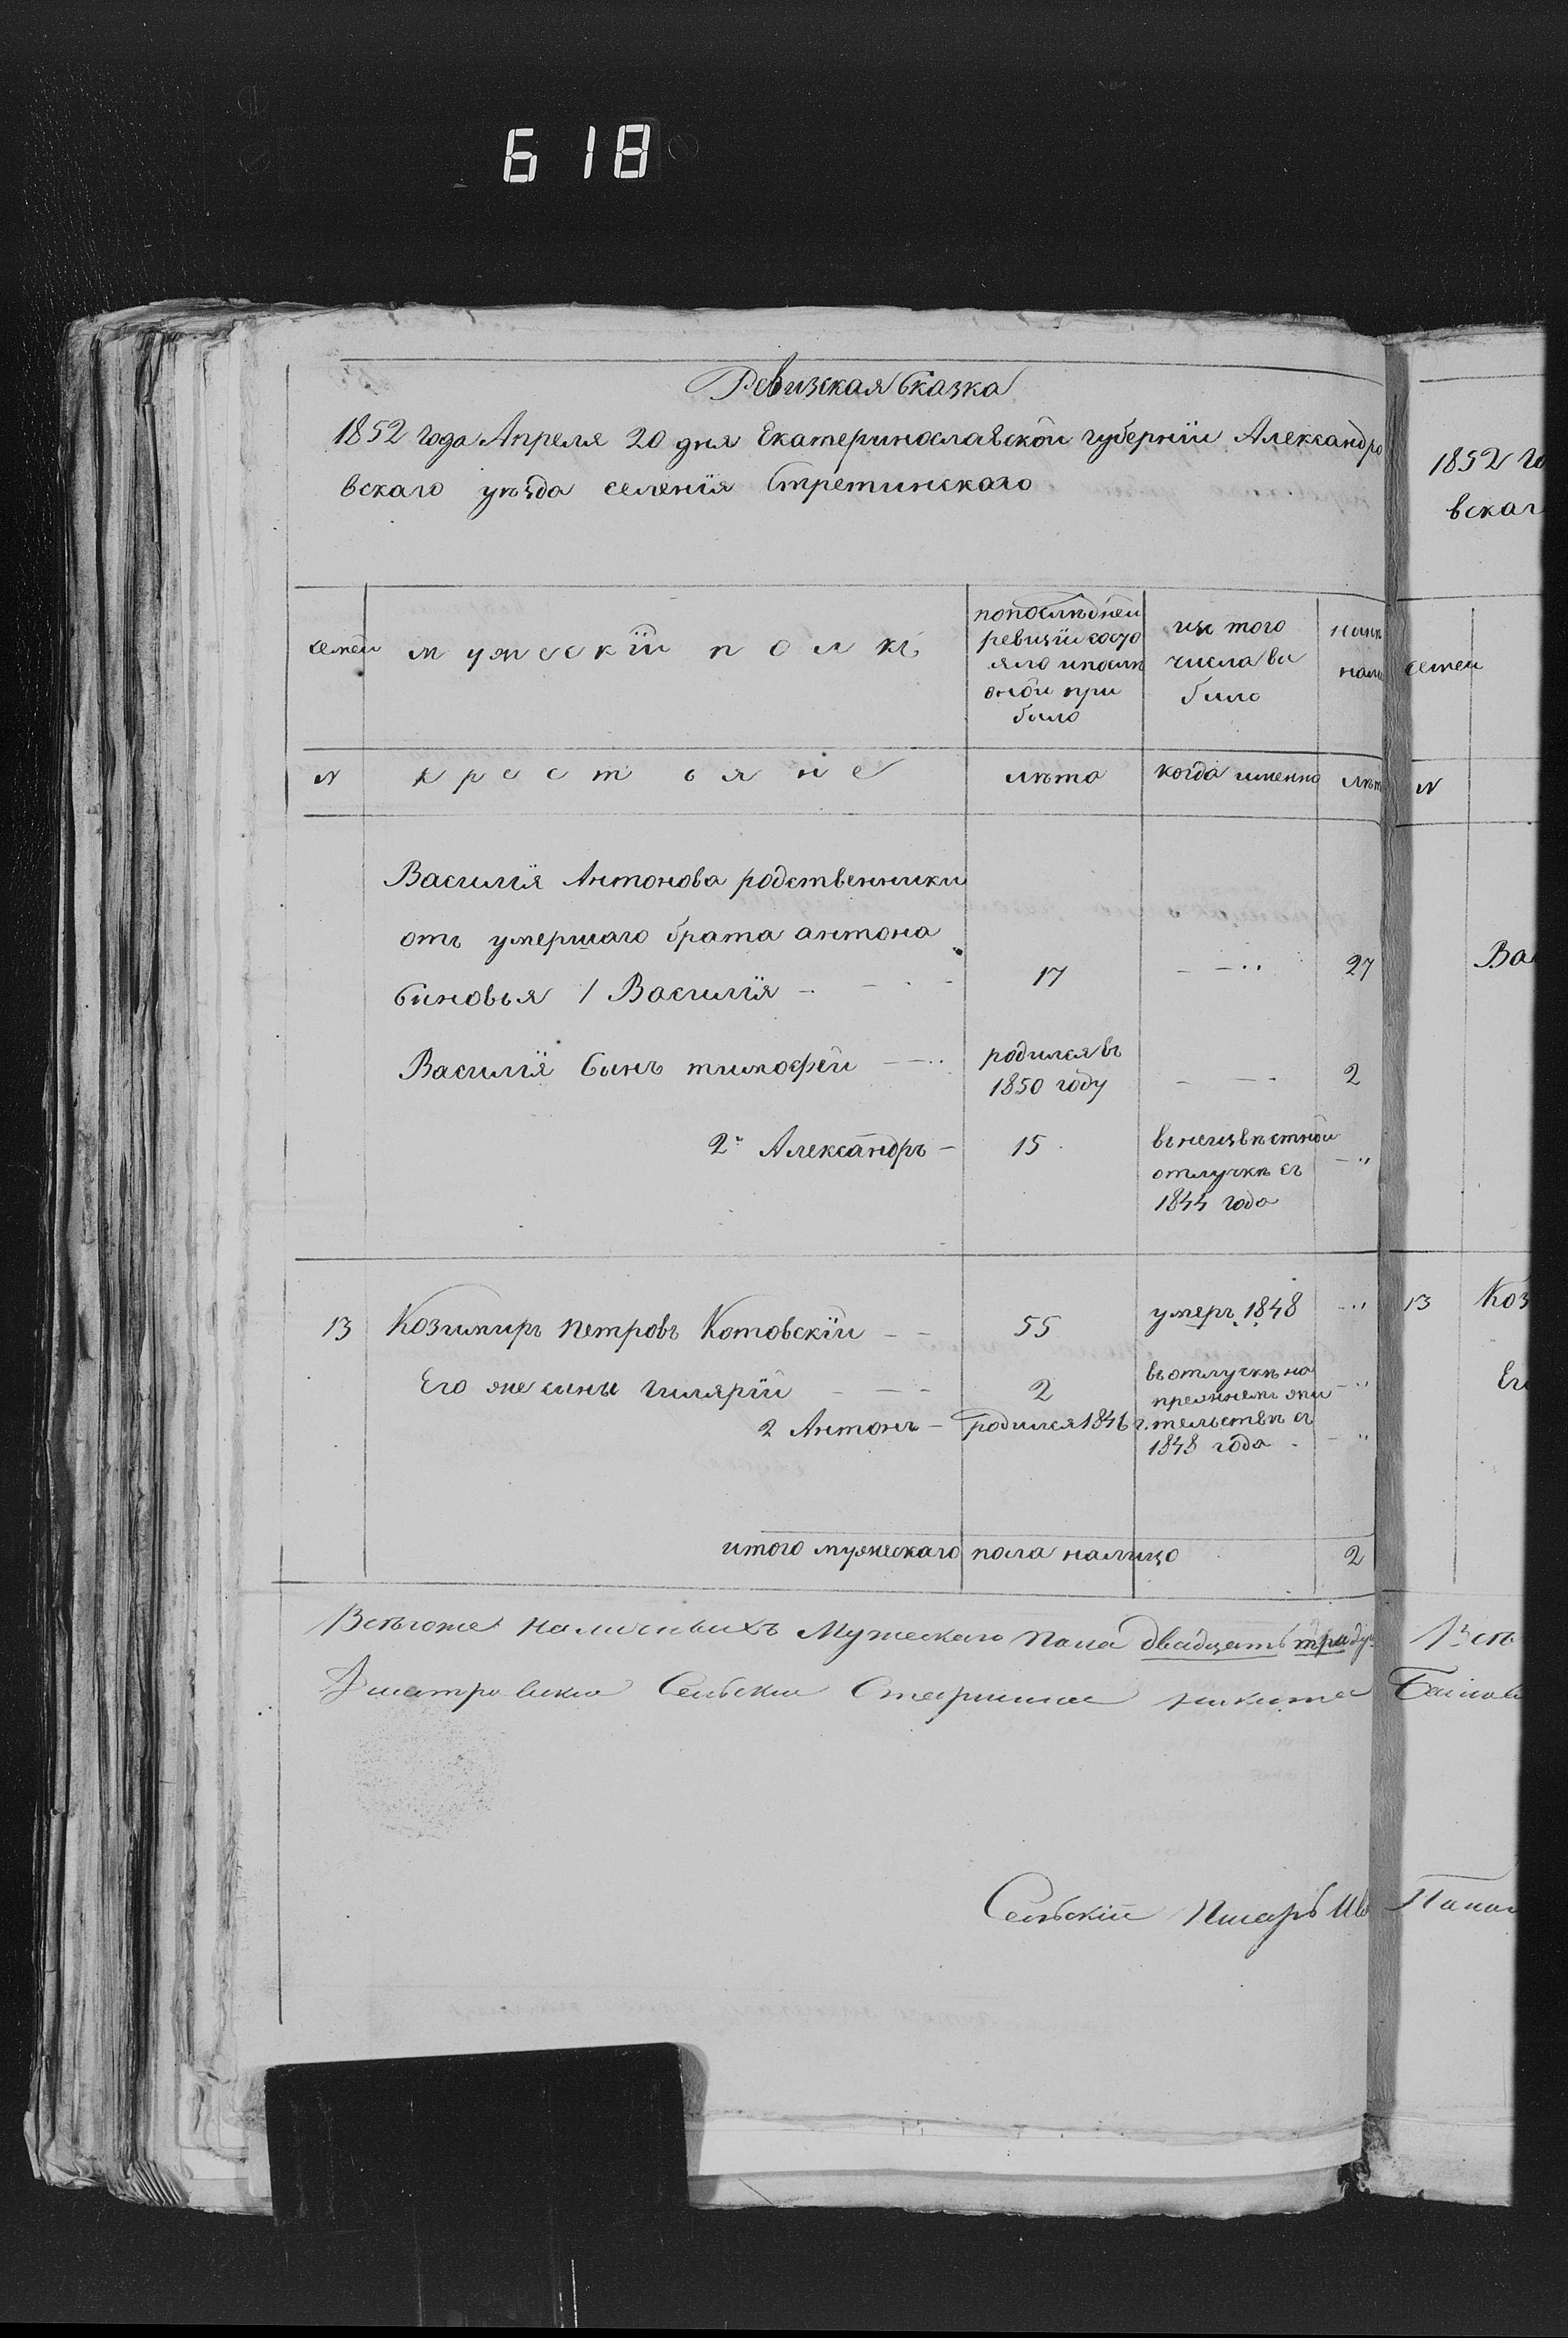 618
Ревизская Сказка
1852 года Апреля 20 дня Екатеринославской губернїи Александро
вскаго уѣзда селенїя Стретинскаго
семей
мужескїй полъ
попослѣдней
ревизїи состо
яло ипослѣ
оной при
было
изъ того
числа вы
было
нынѣ
нали
№
крестьяне
лѣта
когда именно
лѣт
Василїя Антонова родственники
отъ умершаго брата антона
Сыновья 1 Василїй
17
27
Василїя Сынъ тимофей
родился въ
1850 году
2
2й Александръ
15
въ неизвѣстной
отлучкѣ съ
1844 года
13
Козимиръ петровъ Котовскїй
55
умеръ 1848
Его же сыны гилярїй
2
въ отлучкѣ на
прежнемъ жи
2 Антонъ
родился 1846 г.
тельствѣ съ
1848 года
итого мужескаго пола налицо
2
Всѣгоже Наличныхъ Мужескаго пола двадцать три ду
Сельскїй Старшина никита
Сельскїй Писарь Ив
1852 го
вскаг
семей
№
Ва
13
Коз
Ег
Всѣ